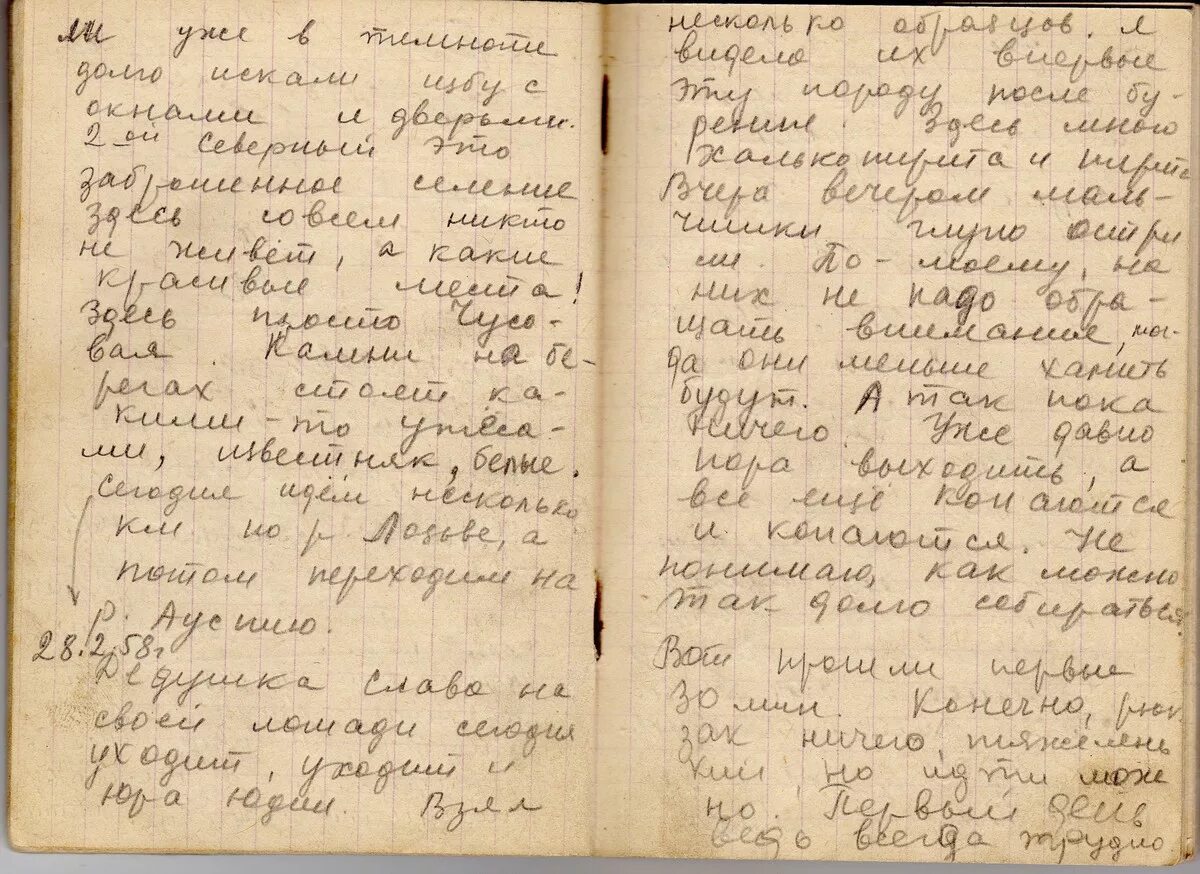 ли уже в темноте
долго искали избу с
окнами и дверьми.
2-ой Северный это
заброшенное селение
Здесь совсем никто
не живёт, а какие
красивые места!
Здесь просто Чусо-
вая. Камни на бе-
регах стоят ка-
кими-то утёса-
ми, известняк, белые.
сегодня идём несколько
км по р. Лозьве, а
потом переходим на
р. Ауспию.
28.2.58г
Дедушка Слава на
своей лошади сегодня
уходит, уходит и
Юра Юдин. Взял
несколько образцов. Я
видела их впервые
эту породу после бу-
рение. Здесь много
халькопирита и пирита
Вчера вечером маль-
чишки глупо остри
ли. По-моему, на
них не надо обра-
щать внимание, тог-
да они меньше хамить
будут. А так пока
ничего. Уже давно
пора выходить, а
все ещё копаются
и копаются. Не
понимаю, как можно
так долго собираться.
Вот прошли первые
30 мин. Конечно, рюк
зак ничего, тяжелень
кий, но идти мож
но. Первый день
ведь всегда трудно